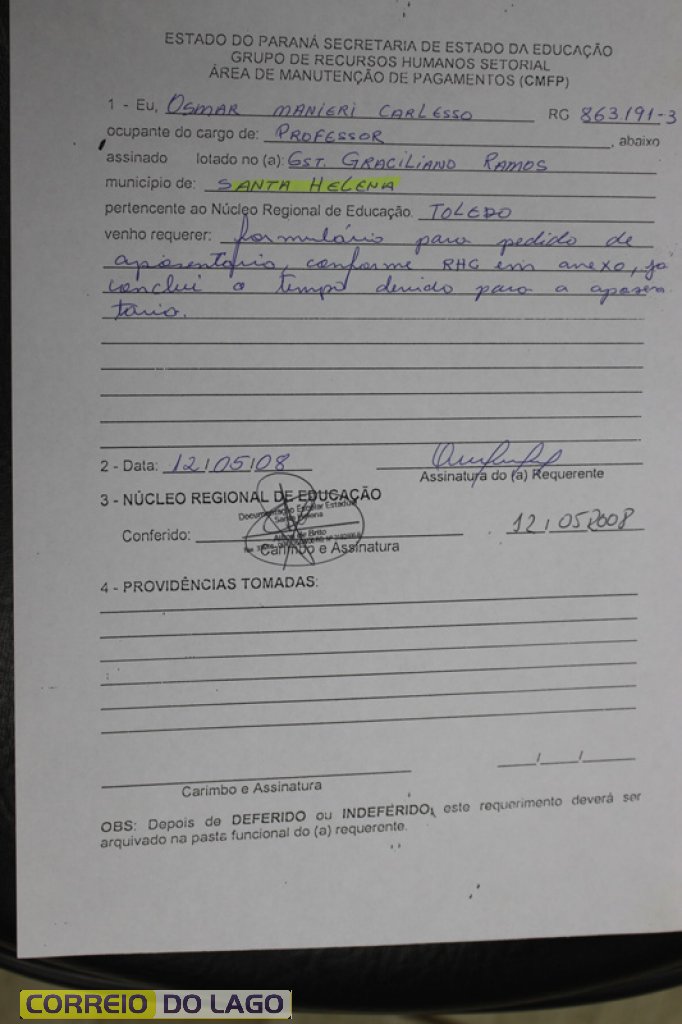 ESTADO DO PARANÁ SECRETARIA DE ESTADO DA EDUCAÇÃO
GRUPO DE RECURSOS HUMANOS SETORIAL
ÁREA DE MANUTENÇÃO DE PAGAMENTOS (CMFP)
1 - Eu, OSMAR MANIERI CARLESSO RG 863191-3
ocupante do cargo de: PROFESSOR, abaixo
assinado lotado no (a): EST. GRACILIANO RAMOS
município de: SANTA HELENA
pertencente ao Núcleo Regional de Educação. TOLEDO
venho requerer: formulário para pedido de
aposentario, conforme RHG em anexo, já
conclui o tempo devido para a aposen
tario.
2 - Data: 12/05/08
Assinatura do (a) Requerente
3 - NÚCLEO REGIONAL DE EDUCAÇÃO
Documentação Escolar Estadual
Santa Helena
Conferido: 12/05/2008
Carimbo e Assinatura
4 - PROVIDÊNCIAS TOMADAS:
__/__/__
Carimbo e Assinatura
OBS: Depois de DEFERIDO ou INDEFERIDO, este requerimento deverá ser
arquivado na pasta funcional do (a) requerente.
CORREIO DO LAGO